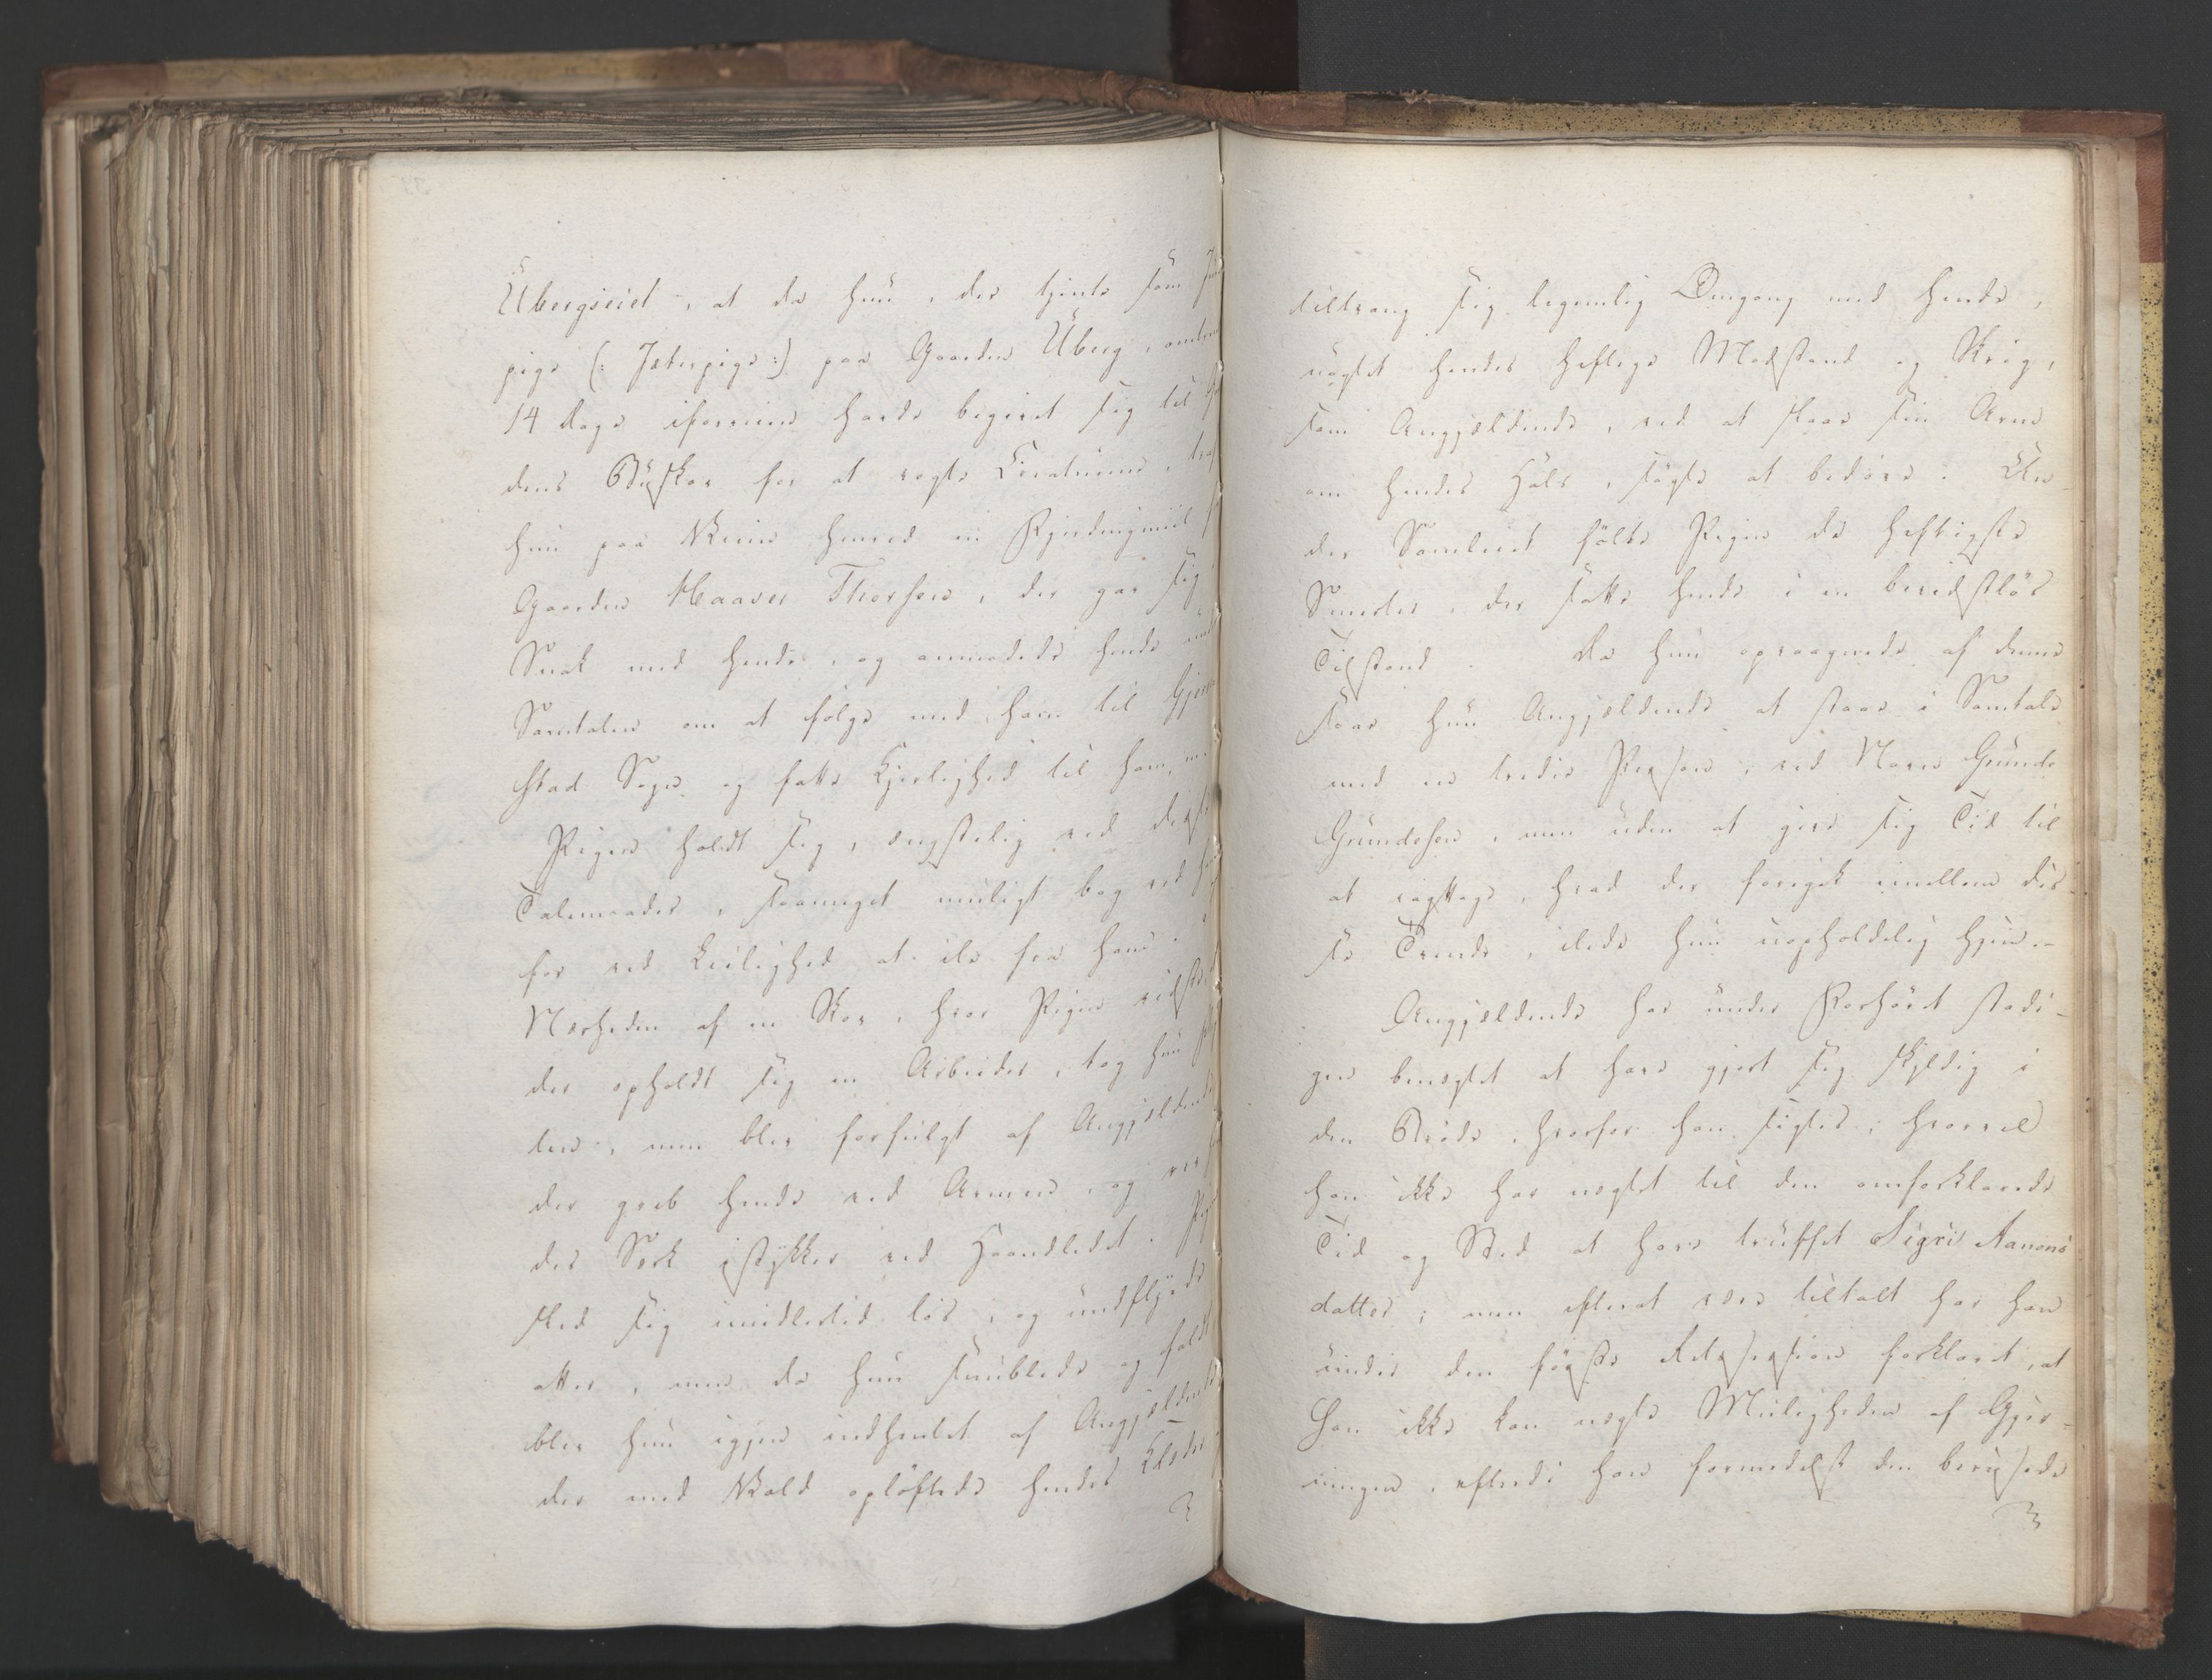 Ubergseiet, at da hun, der tjente som
pige (: Jæterpige :) paa Gaarden Uberg, omtrent
14 Dage iforveien havde begivet sig til
dens Buskar for at røgte Creaturene, traf
hun paa Veien henved en Fjerdingmiil
Gaarden Haaver Thorsen, der gav sig
Snak med hende, og anmodede hende under
Samtalen om at følge med ham til Gjere-
stad Sogn og fatte Kjerlighed til ham,
Pigen holdt sig, ængstelig ved disse
Talemaader, saameget muligt bag ved
for ved Leilighed at ile fra ham. I
Nærheden af en Skov, hvor Pigen vidste
der opholdt sig en Arbeider, tog hun
ten, men blev forfulgt af Angjeldende
der greb hende ved Armen, og rev
des Særk istykker ved Haandledet.
sled sig imidlertid løs, og undflyede
atter, men da hun snublede og faldt
blev hun igjen indhentet af Angjeldende
der med Vold opløftede hendes Klæder
tiltvang sig legemlig Omgang med hende,
uagtet hendes heftige Modstand og Skrig,
som Angjeldende, ved at slaae sin Arm
om hendes Hals, søgte at bedøve. Un-
der Samleiet følte Pigen de heftigste
Smerter, der satte hende i en bevidstløs
Tilstand. Da hun opvaagnede af denne
saae hun Angjeldende at staae i Samtale
med en tredie Person, ved Navn Gunde
Gundesen, men uden at give sig Tid til
at iagttage, hvad der foregik imellem dis-
se Tvende, ilede hun uopholdelig hjem. -
Angjeldende har under Forhøret stadi-
gen benægtet at have gjort sig skyldig i
den Brøde, hvorfor han sigtes; hvorvel
han ikke har nægtet til den omforklarede
Tid og Sted at have truffet Sigri Aanons
datter; men efterat være tiltalt har han
under den første Retssession forklaret, at
Han ikke kan nægte Muligheden af Gjer-
ningen, efterdi han formedelst den berusede